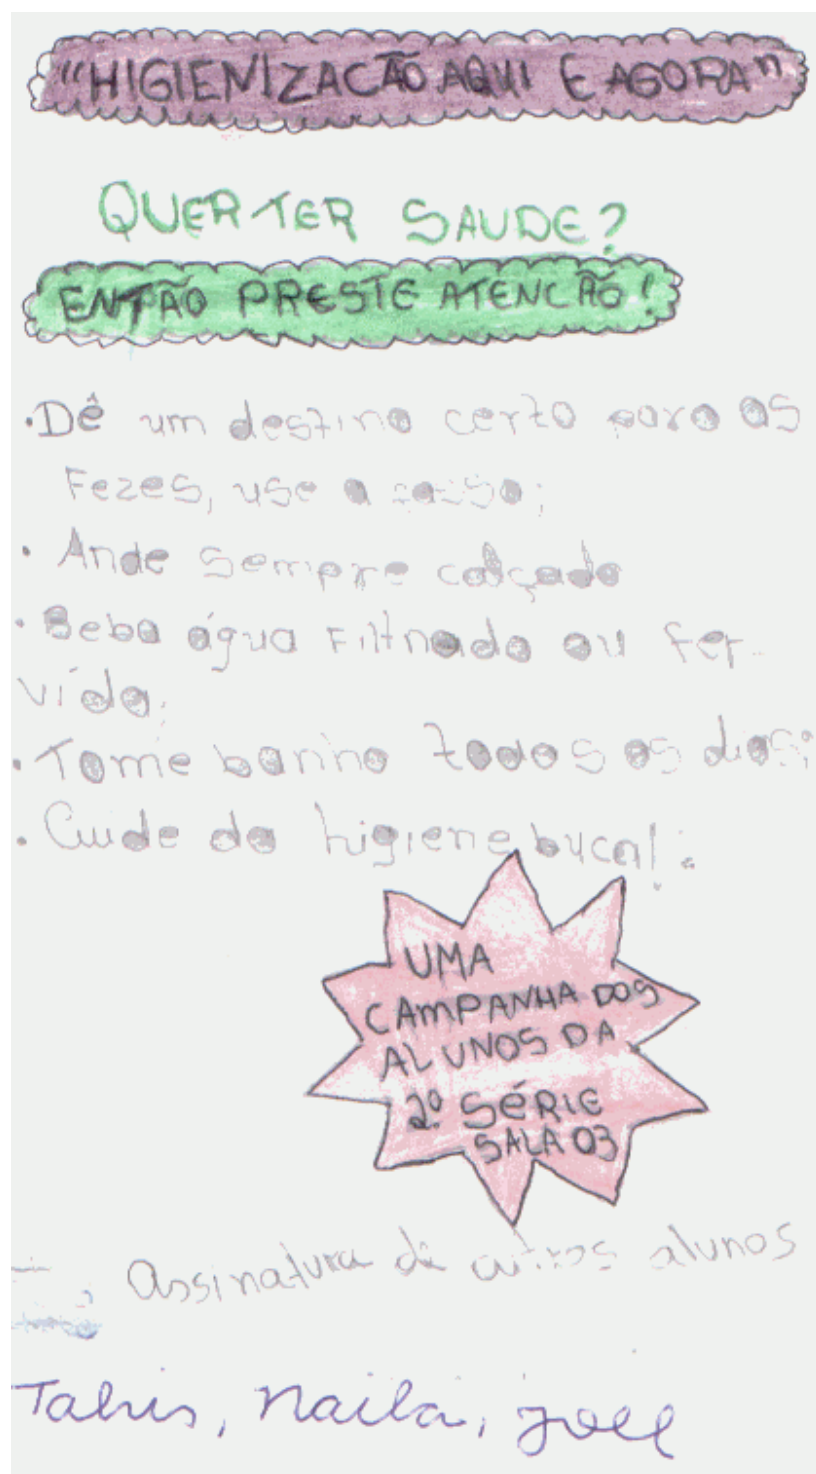 "HIGIENIZACÃO AQUI E AGORA"
QUER TER SAUDE?
ENTÃO PRESTE ATENCÃO!
•Dê um destino certo para as
Fezes, use a fossa;
• Ande sempre calçado
• Beba água Filtrada ou fer-
vida;
• Tome banho todos os dias;
• Cuide da higiene bucal!.
UMA
CAMPANHA DOS
ALUNOS DA
2º SÉRIE
SALA 03
Assinatura de outros alunos
Naila,